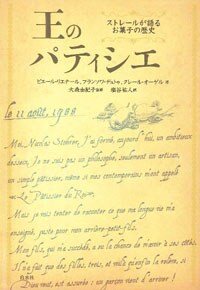 ストレールが語る
お菓子の歴史
王の
パティシエ
ピエール・リエナール、フランソワ・デュトゥ、クレール・オーゲル 著
大森由紀子 監修 塩谷祐人 訳
le 11 août, 1786
Moi, Nicolas Stohrer, j'ai formé, aujourd'hui, un ambitieux
dessein. Je ne suis pas un philosophe, seulement un artisan,
un simple pâtissier, même si mes contemporains m'ont appelé
« Le Pâtissier du Roi ».
Mais je vais tenter de raconter ce que ma longue vie m'a
enseigné, juste pour mon arrière-petit-fils.
Mon fils, qui m'a succédé, a eu la chance de m'avoir à ses côtés.
Il n'a que des filles, trois, et
Dieu
白水社